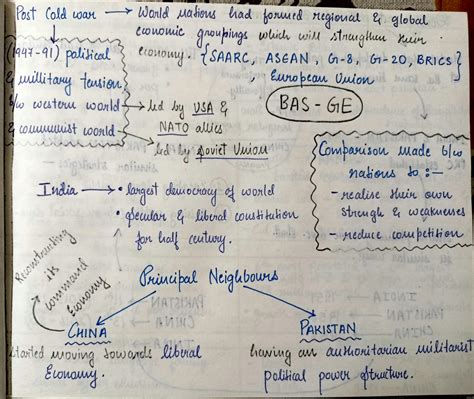 Post Cold war → World nations had formed regional & global
economic groupings which will strengthen their
economy. {SAARC, ASEAN, G-8, G-20, BRICS}
European Union
(1947-91) political
& millitary tension
b/w western world → led by USA &
NATO allies
& communist world → led by Soviet Union
BAS-GE
Comparison made b/w
nations to :-
- realise their own
strengh & weaknesses
- reduce competition
India → • largest democracy of world
• secular & liberal constitution
for half century.
Principal Neighbours
Reconstructing
its
command
Economy
CHINA
started moving towards liberal
Economy.
PAKISTAN
having an authoritarian militarist
political power structure.